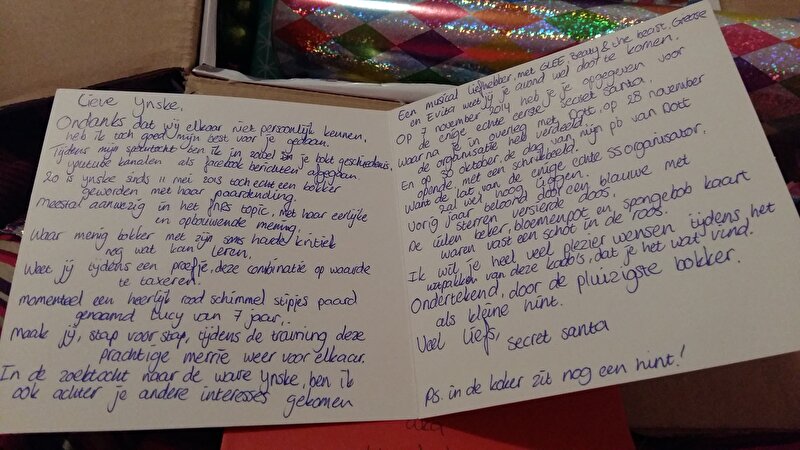 Lieve Ynske,
Ondanks dat wij elkaar niet persoonlijk kennen,
heb ik toch goed mijn best voor je gedaan.
Tijdens mijn speurtocht ben ik in zowel je bokt geschiedenis,
youtube kanalen als facebook berichten
Zo is ynske sinds 11 mei 2013 toch echt een bokker
geworden met haar paardending.
Meestal aanwezig in het topic, met haar eerlijke
en opbouwende mening.
Waar menig bokker met zijn soms harde kritiek
nog wat kan leren.
Weet jij tijdens een proefje, deze combinatie op waarde
te taxeren.
momenteel een heerlijk rood schimmel stipjes paard
genaamd Lucy van 7 jaar,
Maak jij, stap voor stap, tijdens de training deze
prachtige merrie weer voor elkaar.
In de zoektocht naar de ware Ynske, ben ik
ook achter je andere interesses gekomen
Een musical liefhebber, met GLEE, Beaty & the beast, Grease
en Evita weet jij je avond wel door te komen.
Op 7 november 2014 heb je je opgegeven voor
de enige echte eerste secret santa.
Waarna je in overleg met Dott, op 28 november
de organisatie hebt verdeeld.
En op 30 oktober, de dag van mijn pb van Dott
opende met een schrikbeeld.
Want de lat van de enige echte SS organisator,
zal wel hoog liggen.
Vorig jaar beloond door een blauwe met
sterren versierde doos.
De uilen beker, bloemenpot en, spongebob kaart
waren vast een schot in de roos.
Ik wil je heel veel plezier wensen tijdens het
uitpakken van deze kado's, dat je het wat vind.
Ondertekend, door de pluizigste bokker.
als kleine hint.
Veel liefs, secret santa
Ps. in de koker zit nog een hint!